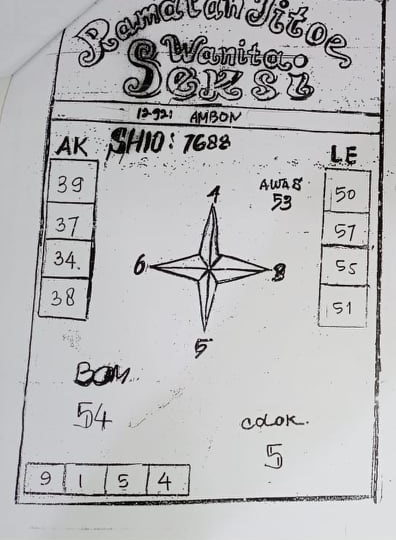 Ramalan Jitoe
Wanita
Seksi
12-921 AMBON
AK
SHIO: 7688
LE
39
37
34.
38
4
6
8
5
AWAS
53
50
57
55
51
BOM.
54
COLOK.
5
9 1 5 4